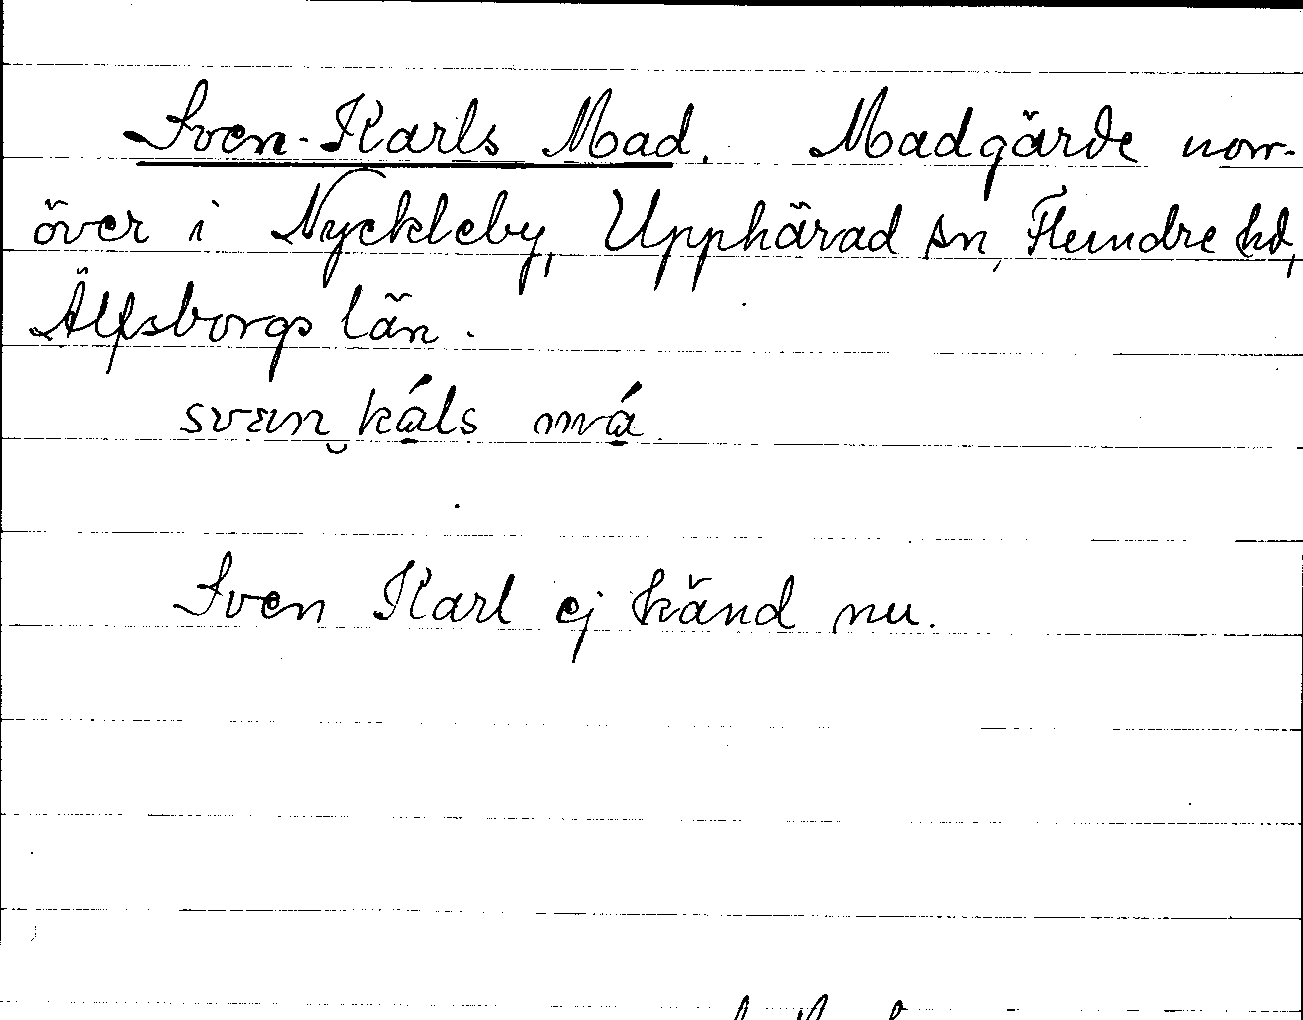 Sven-Karls Mad. Madgärde norr-
över i Nyckleby, Upphärad sn, Flundre hd,
Älfsborgs län.
svæn káls má
Sven Karl ej känd nu.